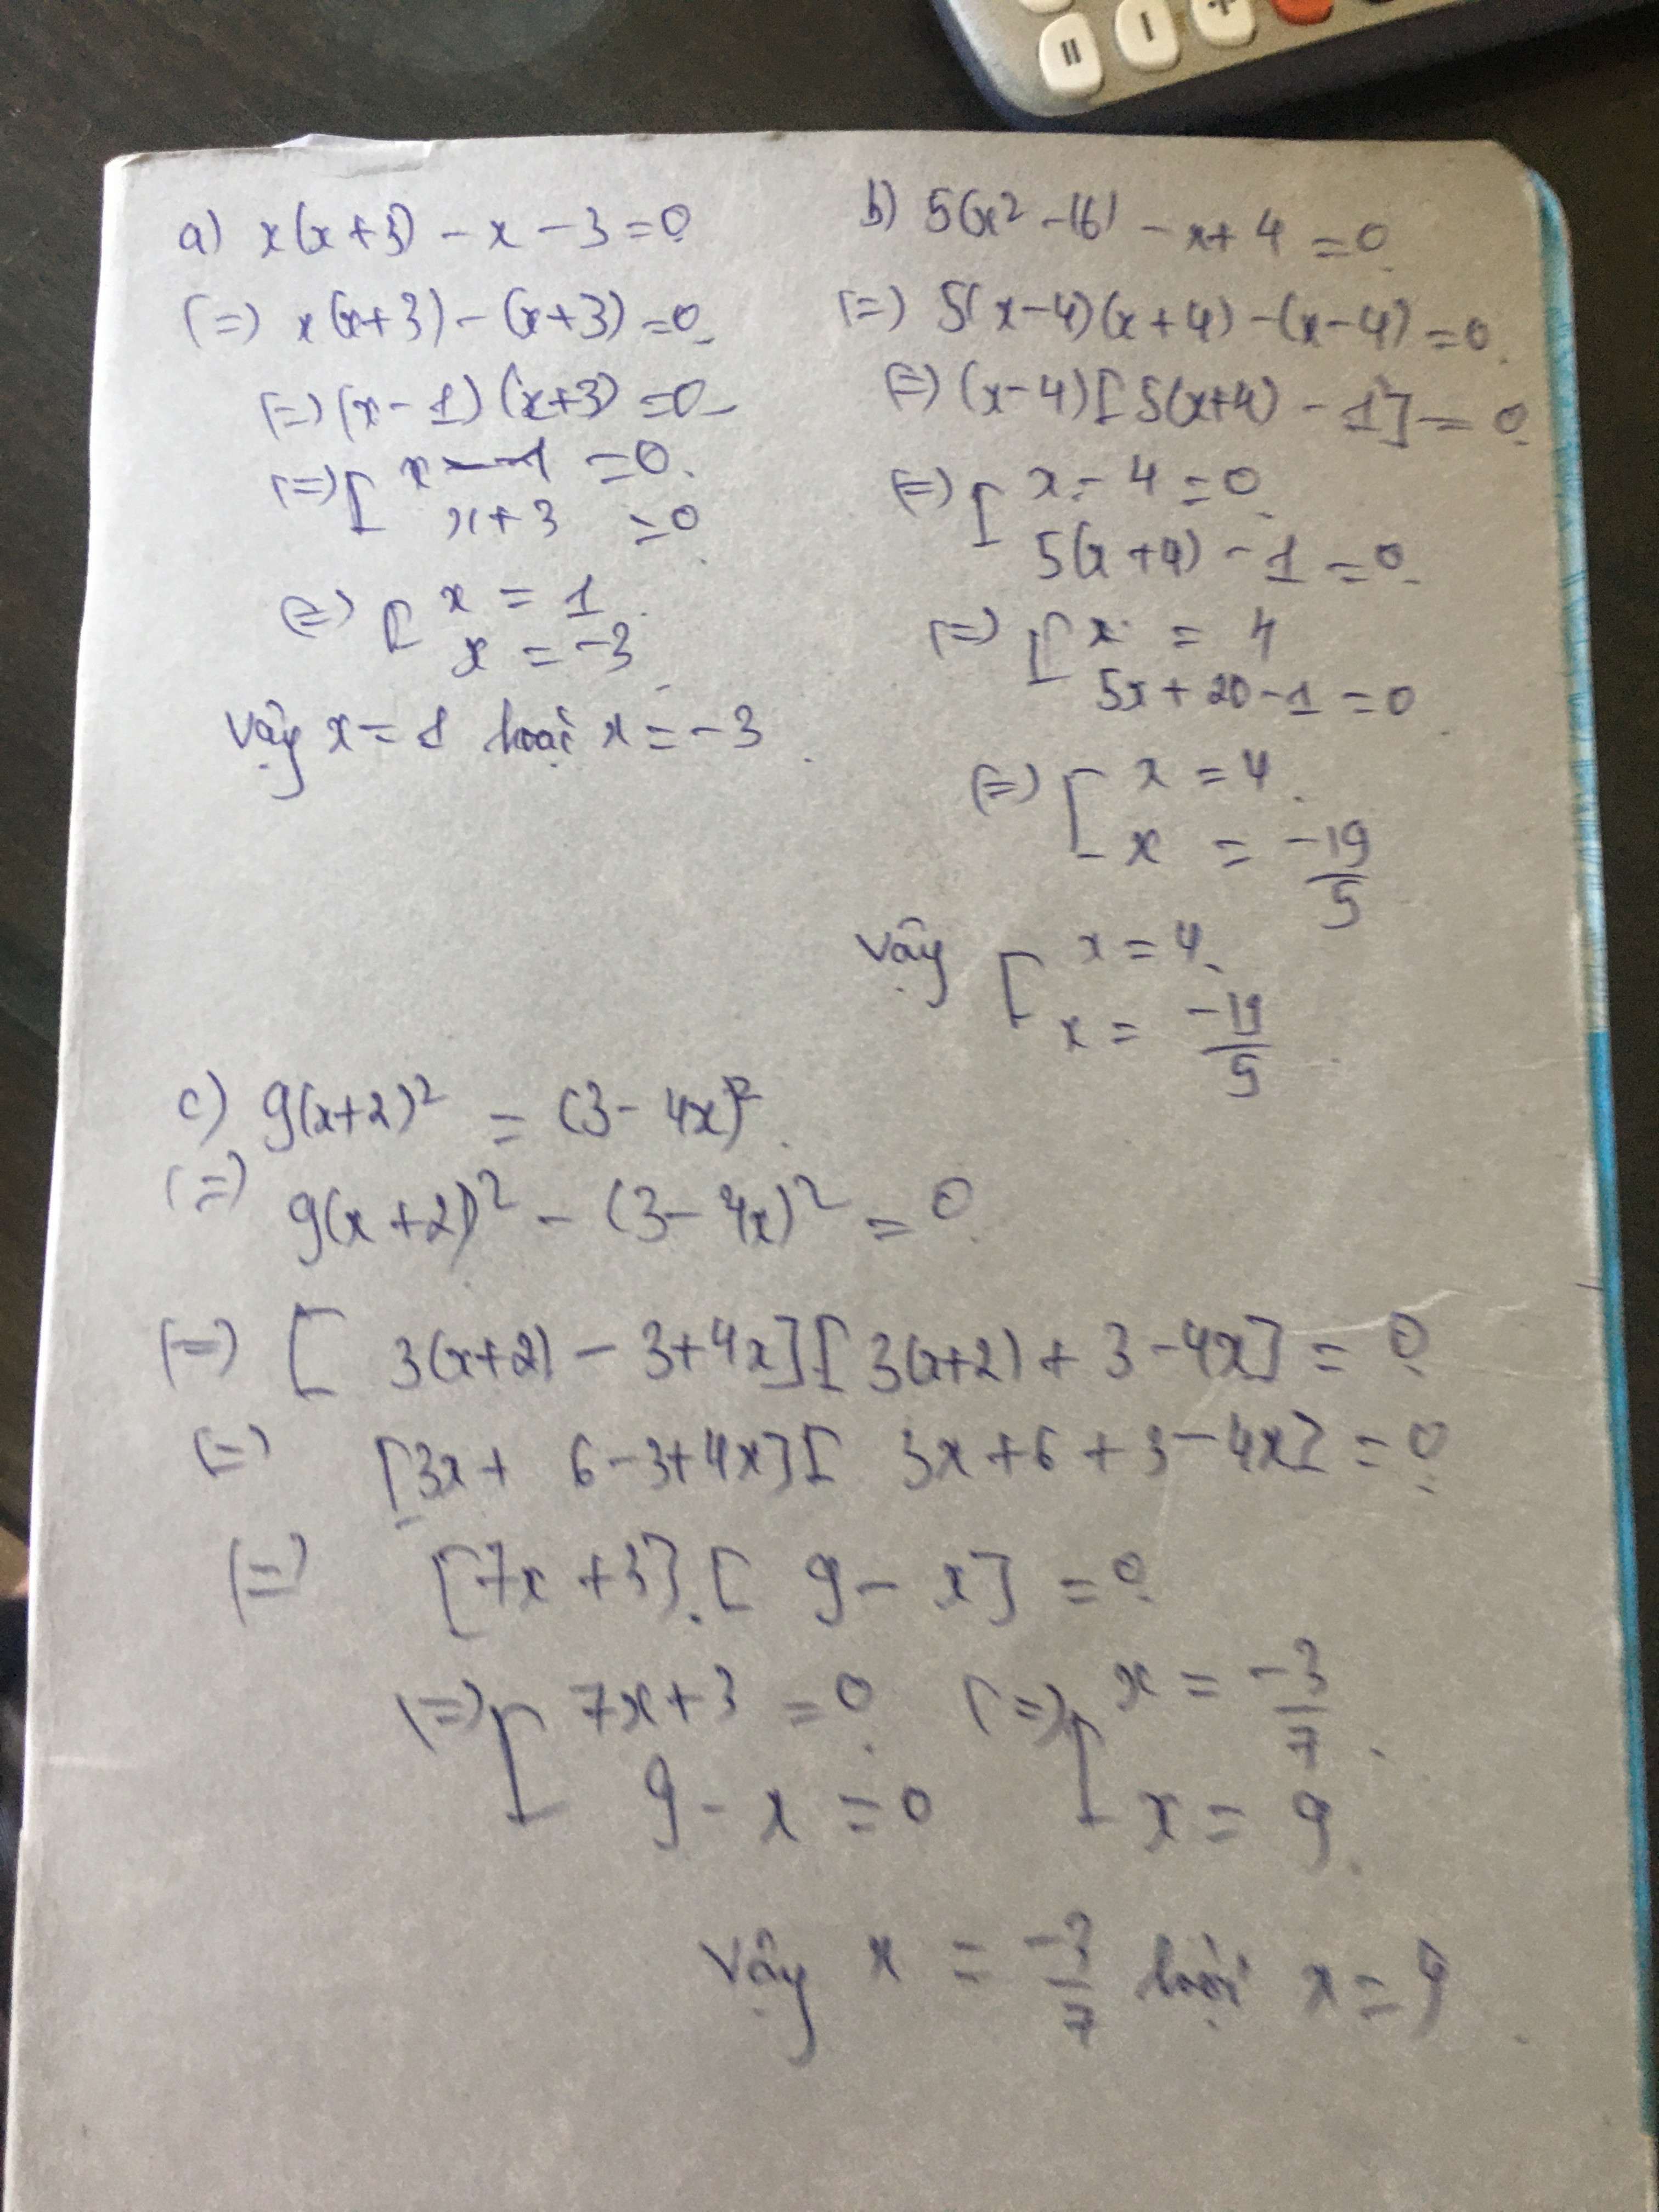 a) x(x+3) - x - 3 = 0
(=) x(x+3) - (x+3) = 0
(=) (x-1)(x+3) = 0
(=) [ x - 1 = 0
x+3 = 0
(=) [ x = 1
x = -3
Vậy x = 1 hoặc x = -3
b) 5(x² - 16) - x + 4 = 0
(=) 5(x-4)(x+4) - (x-4) = 0
(=) (x-4)[5(x+4) - 1] = 0
(=) [ x - 4 = 0
5(x+4) - 1 = 0
(=) [ x = 4
5x + 20 - 1 = 0
(=) [ x = 4
x = -19/5
Vậy [ x = 4
x = -19/5
c) 9(x+2)² = (3 - 4x)²
(=) 9(x+2)² - (3 - 4x)² = 0
(=) [3(x+2) - 3+4x][3(x+2) + 3 - 4x] = 0
(=) [3x + 6 - 3+4x][3x + 6 + 3 - 4x] = 0
(=) [7x + 3].[9 - x] = 0
(=) [ 7x + 3 = 0 (=) [ x = -3/7
9 - x = 0 x = 9
Vậy x = -3/7 hoặc x = 9
=